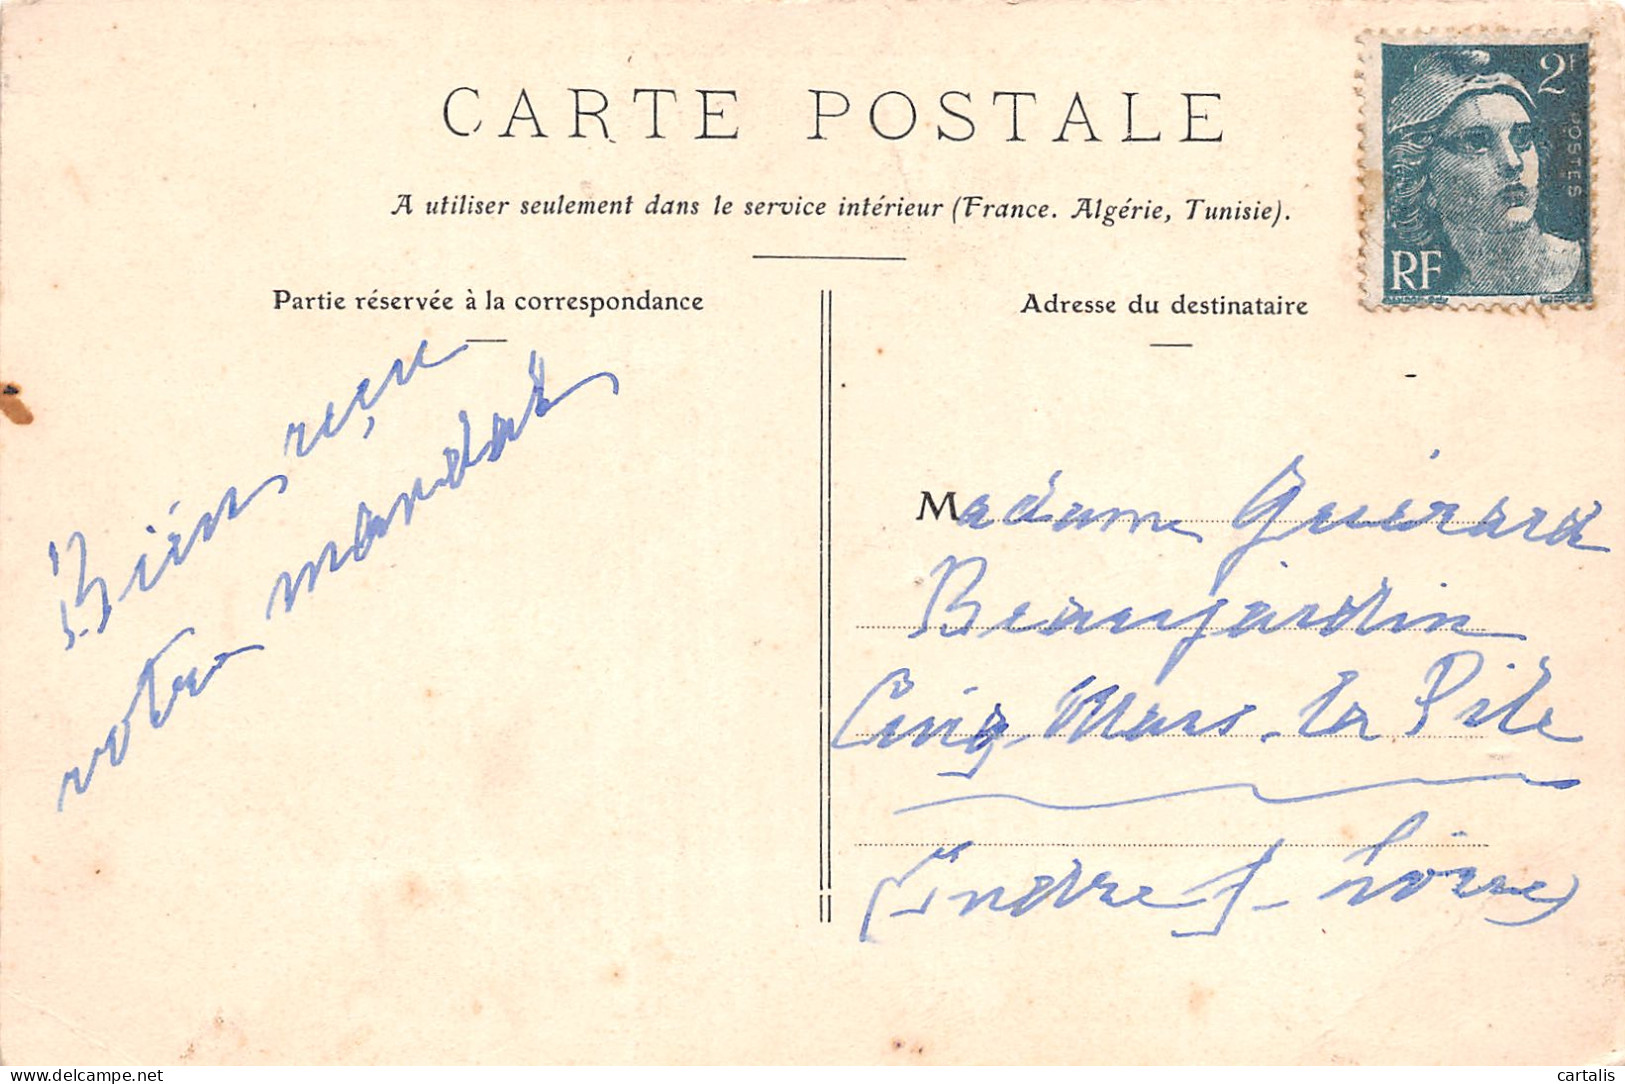 CARTE POSTALE
A utiliser seulement dans le service intérieur (France. Algérie, Tunisie).
2F
POSTES
RF
Partie réservée à la correspondance
Bien reçu
votre mandat
Adresse du destinataire
Madame Guérard
Beaujardin
Cinq-Mars-la Pile
(Indre & Loire)
www.delcampe.net
cartalis